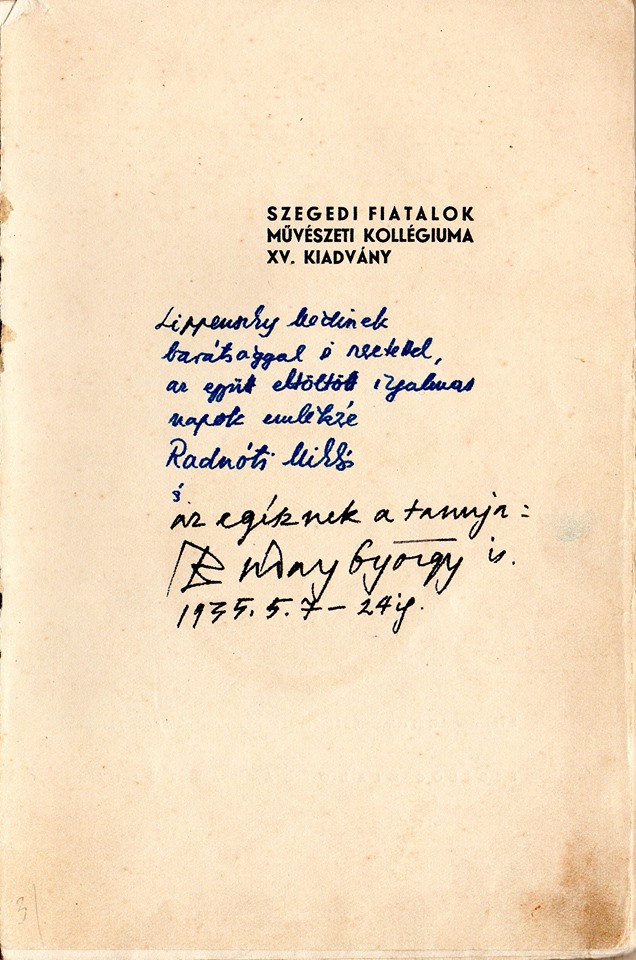 SZEGEDI FIATALOK
MŰVÉSZETI KOLLÉGIUMA
XV. KIADVÁNY
barátsággal és szeretettel,
az együtt eltöltött izgalmas
napok emlékére
Radnóti Miklós
és
az egésznek a tanuja:
Buday György is.
1935. 5. 7 – 24ig.